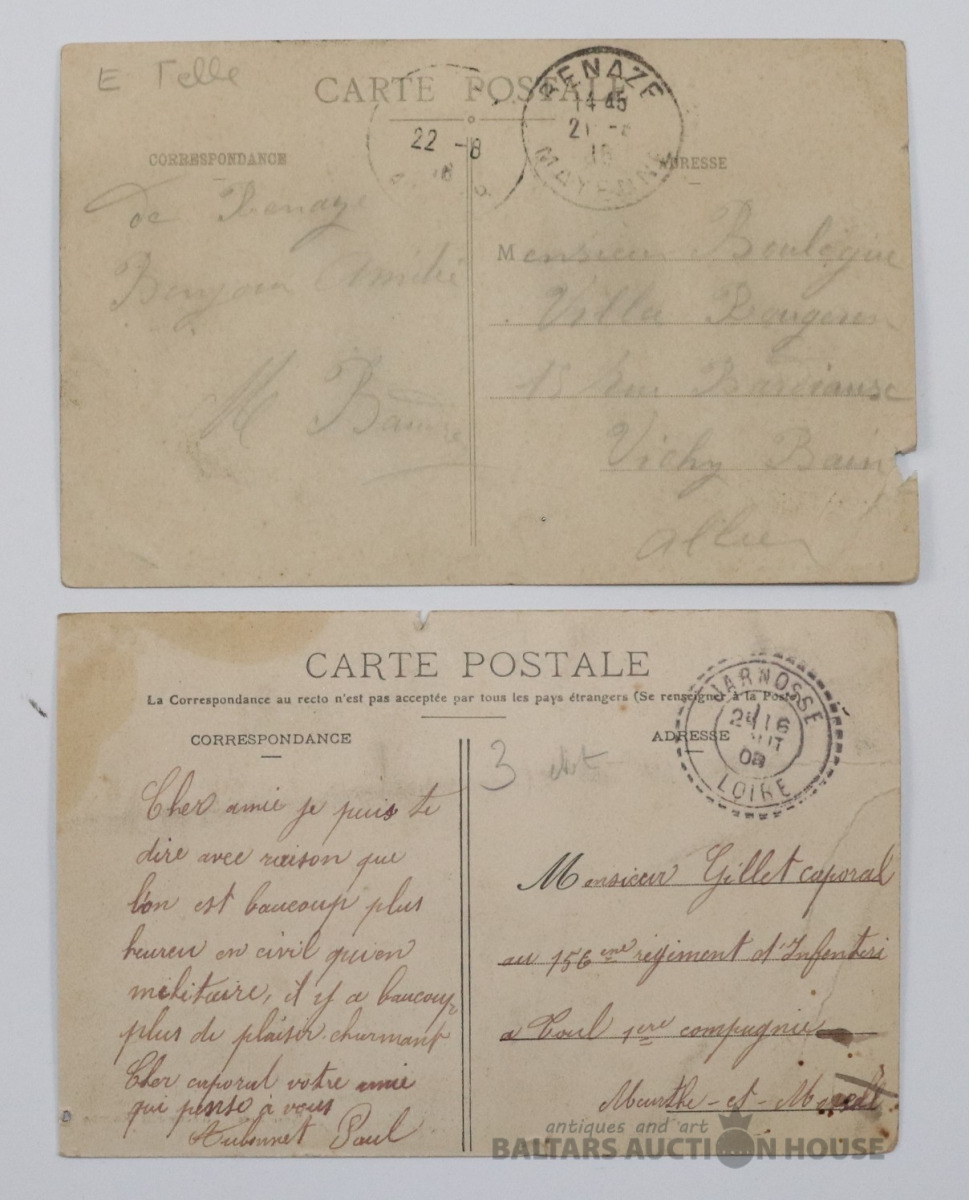 E Telle
CARTE POSTALE
RENAZE
14 45
21 -8
16
MAYENNE
22 -8
CORRESPONDANCE
ADRESSE
de Renaze
Bonjour Amitié
M
Monsieur Boulogne
Villa
15 Rue
Vichy Bain
Allier
CARTE POSTALE
La Correspondance au recto n'est pas acceptée par tous les pays étrangers (Se renseigner à la Poste)
JARNOSSE
LOIRE
CORRESPONDANCE
ADRESSE
3
Cher amie je puis te
dire avec raison que
l'on est baucoup plus
heureu en civil qu'en
militaire, il y a baucoup
plus de plaisir charmant
Cher caporal votre amie
qui pense à vous
Aubonnet Paul
Monsieur Gillet caporal
au 156 eme régiment d'Infanteri
a Toul 1ere compagnie
Meurthe-et-Mosell
antiques and art
BALTARS AUCTION HOUSE